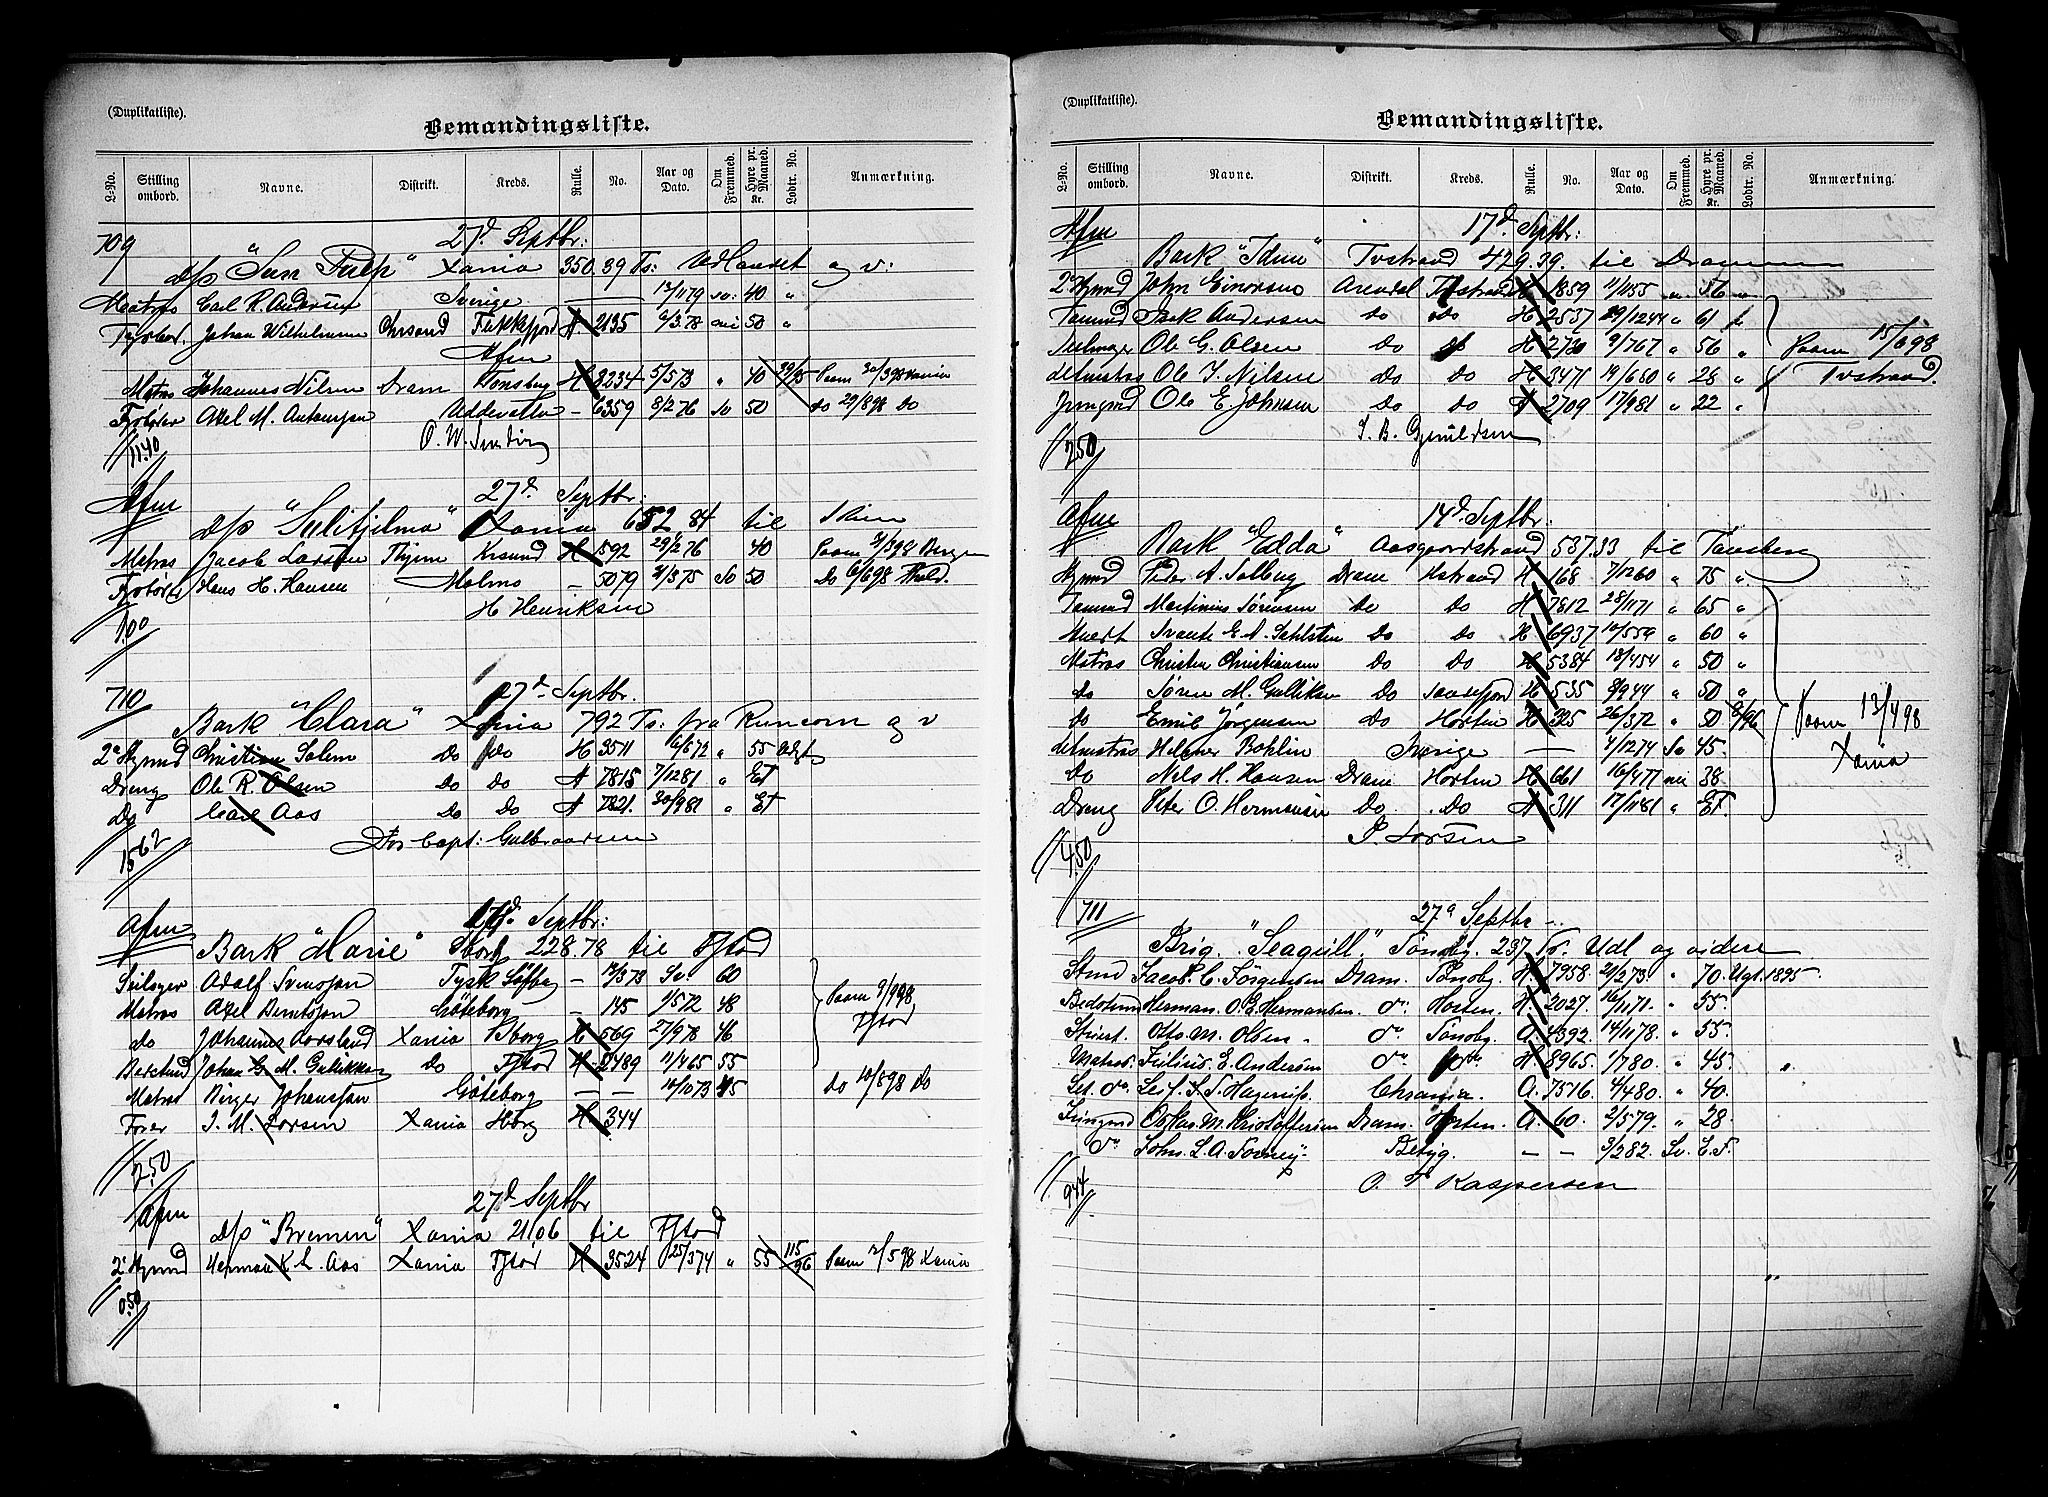 (Duplikatliste).
Bemandingsliste.
L-No. Stilling ombord. Navne. Distrikt. Kreds. Rulle. No. Aar og Dato. Om Fremmed. Hyre pr. Maaned. Kr. Lodtr. No. Anmærkning.
709 27d Septbr:
d/s "Sun Xania 350.39 Ts: Udlandet og v:
Matros Carl R. Andersen Sverige — 12/1179 sv: 40 "
Johan Wilhelmsen Chrsand Flekkefjord A 2135 6/3.78 50 "
Afm
Matros Johannes Nilsen Dram Tonsberg H 3234 5/573 " 40 39/95 Paam 30/398 Xania
Fyrbøter Axel M. Uddevalla - 6359 8/276 Sv 50 do 29/898 Do
O. W.
11.40
Afm 27d. Septbr.
d/s "Sulitjelma" Xania 652 84 til
Matros Jacob Larsen Thjem Krsund H 592 29/276 40 Paam 8/398 Bergen
Fyrbøter Hans H. Hansen Malmø - 5079 4/375 Sv 50 Do 6/698
H Henriksen
1.00
710 27d Septbr.
Bark "Clara" Xania 792 Ts: fra Runcorn og v
2den Stymd Christian Solem Do Do H 3511 6/672 " 55
Dreng Ole R. Olsen do do A 7815 7/1281 " Et
Do Carl Aas do Do A 7821. 30/981 " Et
For Capt: Gulbraarsen
15.62
Afm 17d. Septbr:
Bark "Marie" 228.78 til Fstad
Seilmager Adolf Svensson Tysk — 12/373 Sv 60
Matros Axel Berntsson Göteborg - 145 1/572 48 Paam 9/998 Fstad
do Johannes Aarsland Xania H 569 27/978 46
Johan G. M. Gullikksen Do Fstad H 2489 11/465 55
Matros Birger Johansson Göteborg — — 10/1073 45 Do 10/898 Do
J. M. Larsen Xania H 344
2.50
Afm 27d Septbr
d/s "Bremen" Xania 2106 til Fstad
2den Stymd Herman K. L. Aas Xania Fstad H 3524 25/374 " 55 115/96 Paam 2/598 Xania
0.50
(Duplikatliste).
Bemandingsliste.
L-No. Stilling ombord. Navne. Distrikt. Kreds. Rulle. No. Aar og Dato. Om Fremmed. Hyre pr. Maaned. Kr. Lodtr. No. Anmærkning.
Afm 17d. Septbr:
Bark "Idun" Tvstrand 429.39. til Drammen
2den Stymd John Einersen Arendal Tvstrand H 1859 11/1155 " 56 "
Tømmd Andersen do Do H 2537 29/1244 " 61
Seilmager Ole G. Olsen Do H 2730 9/767 " 56 " Paam 15/698
Ole J. Nilsen Do Do H 3471 19/660 " 28 " Tvstrand.
Jungmd Ole E. Johnsen Do do A 2709 17/981 " 22 "
250
Afm 14d. Septbr.
Bark "Edda" Aasgaardstrand 537.33 til Tønsberg
Stymd Peder A. Solberg Dram H 168 7/1260 " 75 "
Tømmd Martinius Sørensen Do Do H 7812 28/1171 " 65 "
Svante E. A. Sehlstin do Do H 6937 10/559 " 60 "
Matros Christen Christiansen do Do H 5384 18/454 " 50 "
do Søren M. Gulliksen Do Sandefjord H 535 9/944 " 50 "
do Emil Jørgensen do Horten H 325 26/372 " 50 9/96 Paam 13/498
Helmer Bohlin Sverige — 4/1274 Sv 45. Xania
do Nils H. Hansen Dram Horten H 661 16/477 38.
Dreng Peter O. Hermansen Do Do A 311 17/1181 " Et.
P. Larsen
4.50
711 27d Septbr
Brig. "Seagull." Tönsby. 237 Udl og videre
Stmd Jacob. C. Jørgensen Dram. Tönsby. H. 7958. 29/273. " 70. Ugt. 1895.
Bedstmd Herman. O. E. Hermansen dto. Horten. H. 2027. 16/1171. " 55.
Stuert. Otto. M. Olsen. dto Tönsby. A. 4392. 14/1178. " 55.
Matros. Julius. E. Andersen dto H. 8965. 1/780. " 45.
Let. dto. Leif. Chrania. A. 7516. 4/480. " 40.
Jungmd Oskar. M. Kristoffersen Dram. Horten. A. 60. 2/579. " 28.
dto John. L. A. — — 3/282. Sv. E.T.
O. T Kaspersen
944